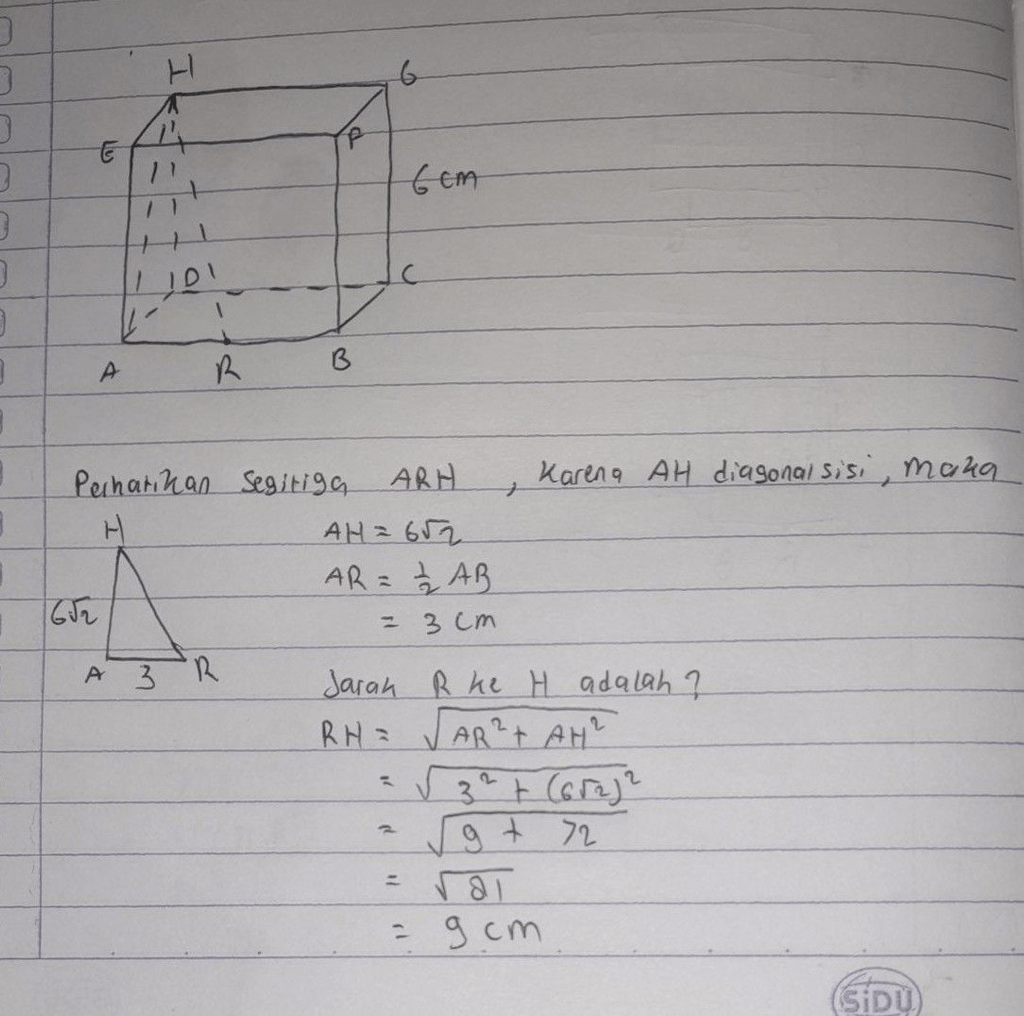 H
G
E
F
6 cm
D
C
A
R
B
Perhatikan segitiga ARH , karena AH diagonal sisi, maka
H
AH = 6√2
AR = ½ AB
6√2
= 3 cm
A 3 R
Jarak R ke H adalah?
RH = √AR² + AH²
= √3² + (6√2)²
= √9 + 72
= √81
= 9 cm
SiDU